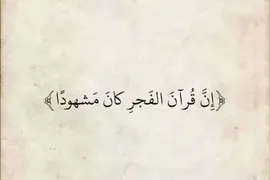 ﴿إِنَّ قُرآنَ الفَجرِ كانَ مَشهودًا﴾